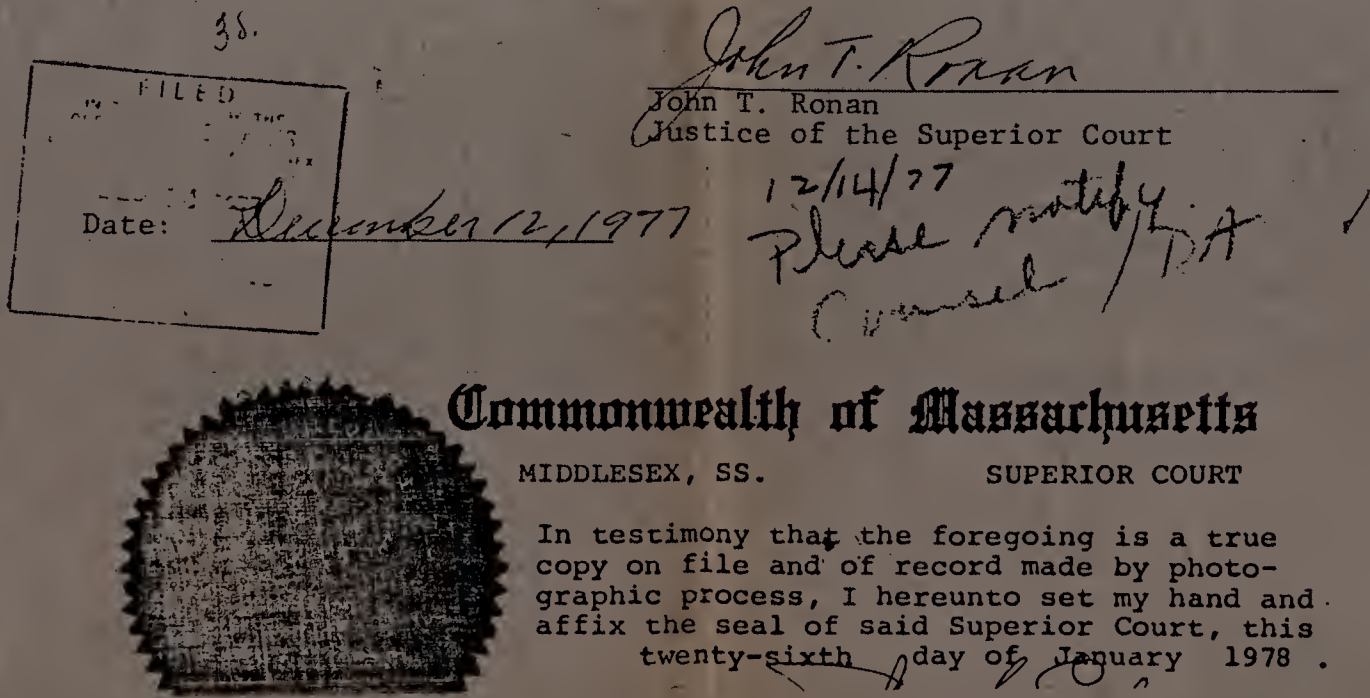 38.
John T. Ronan
John T. Ronan
Justice of the Superior Court
FILED
THE
Date: December 12, 1977
12/14/77
Please notify
Counsel / DA
Commonwealth of Massachusetts
MIDDLESEX, SS. SUPERIOR COURT
In testimony that the foregoing is a true
copy on file and of record made by photo-
graphic process, I hereunto set my hand and
affix the seal of said Superior Court, this
twenty-sixth day of January 1978 .